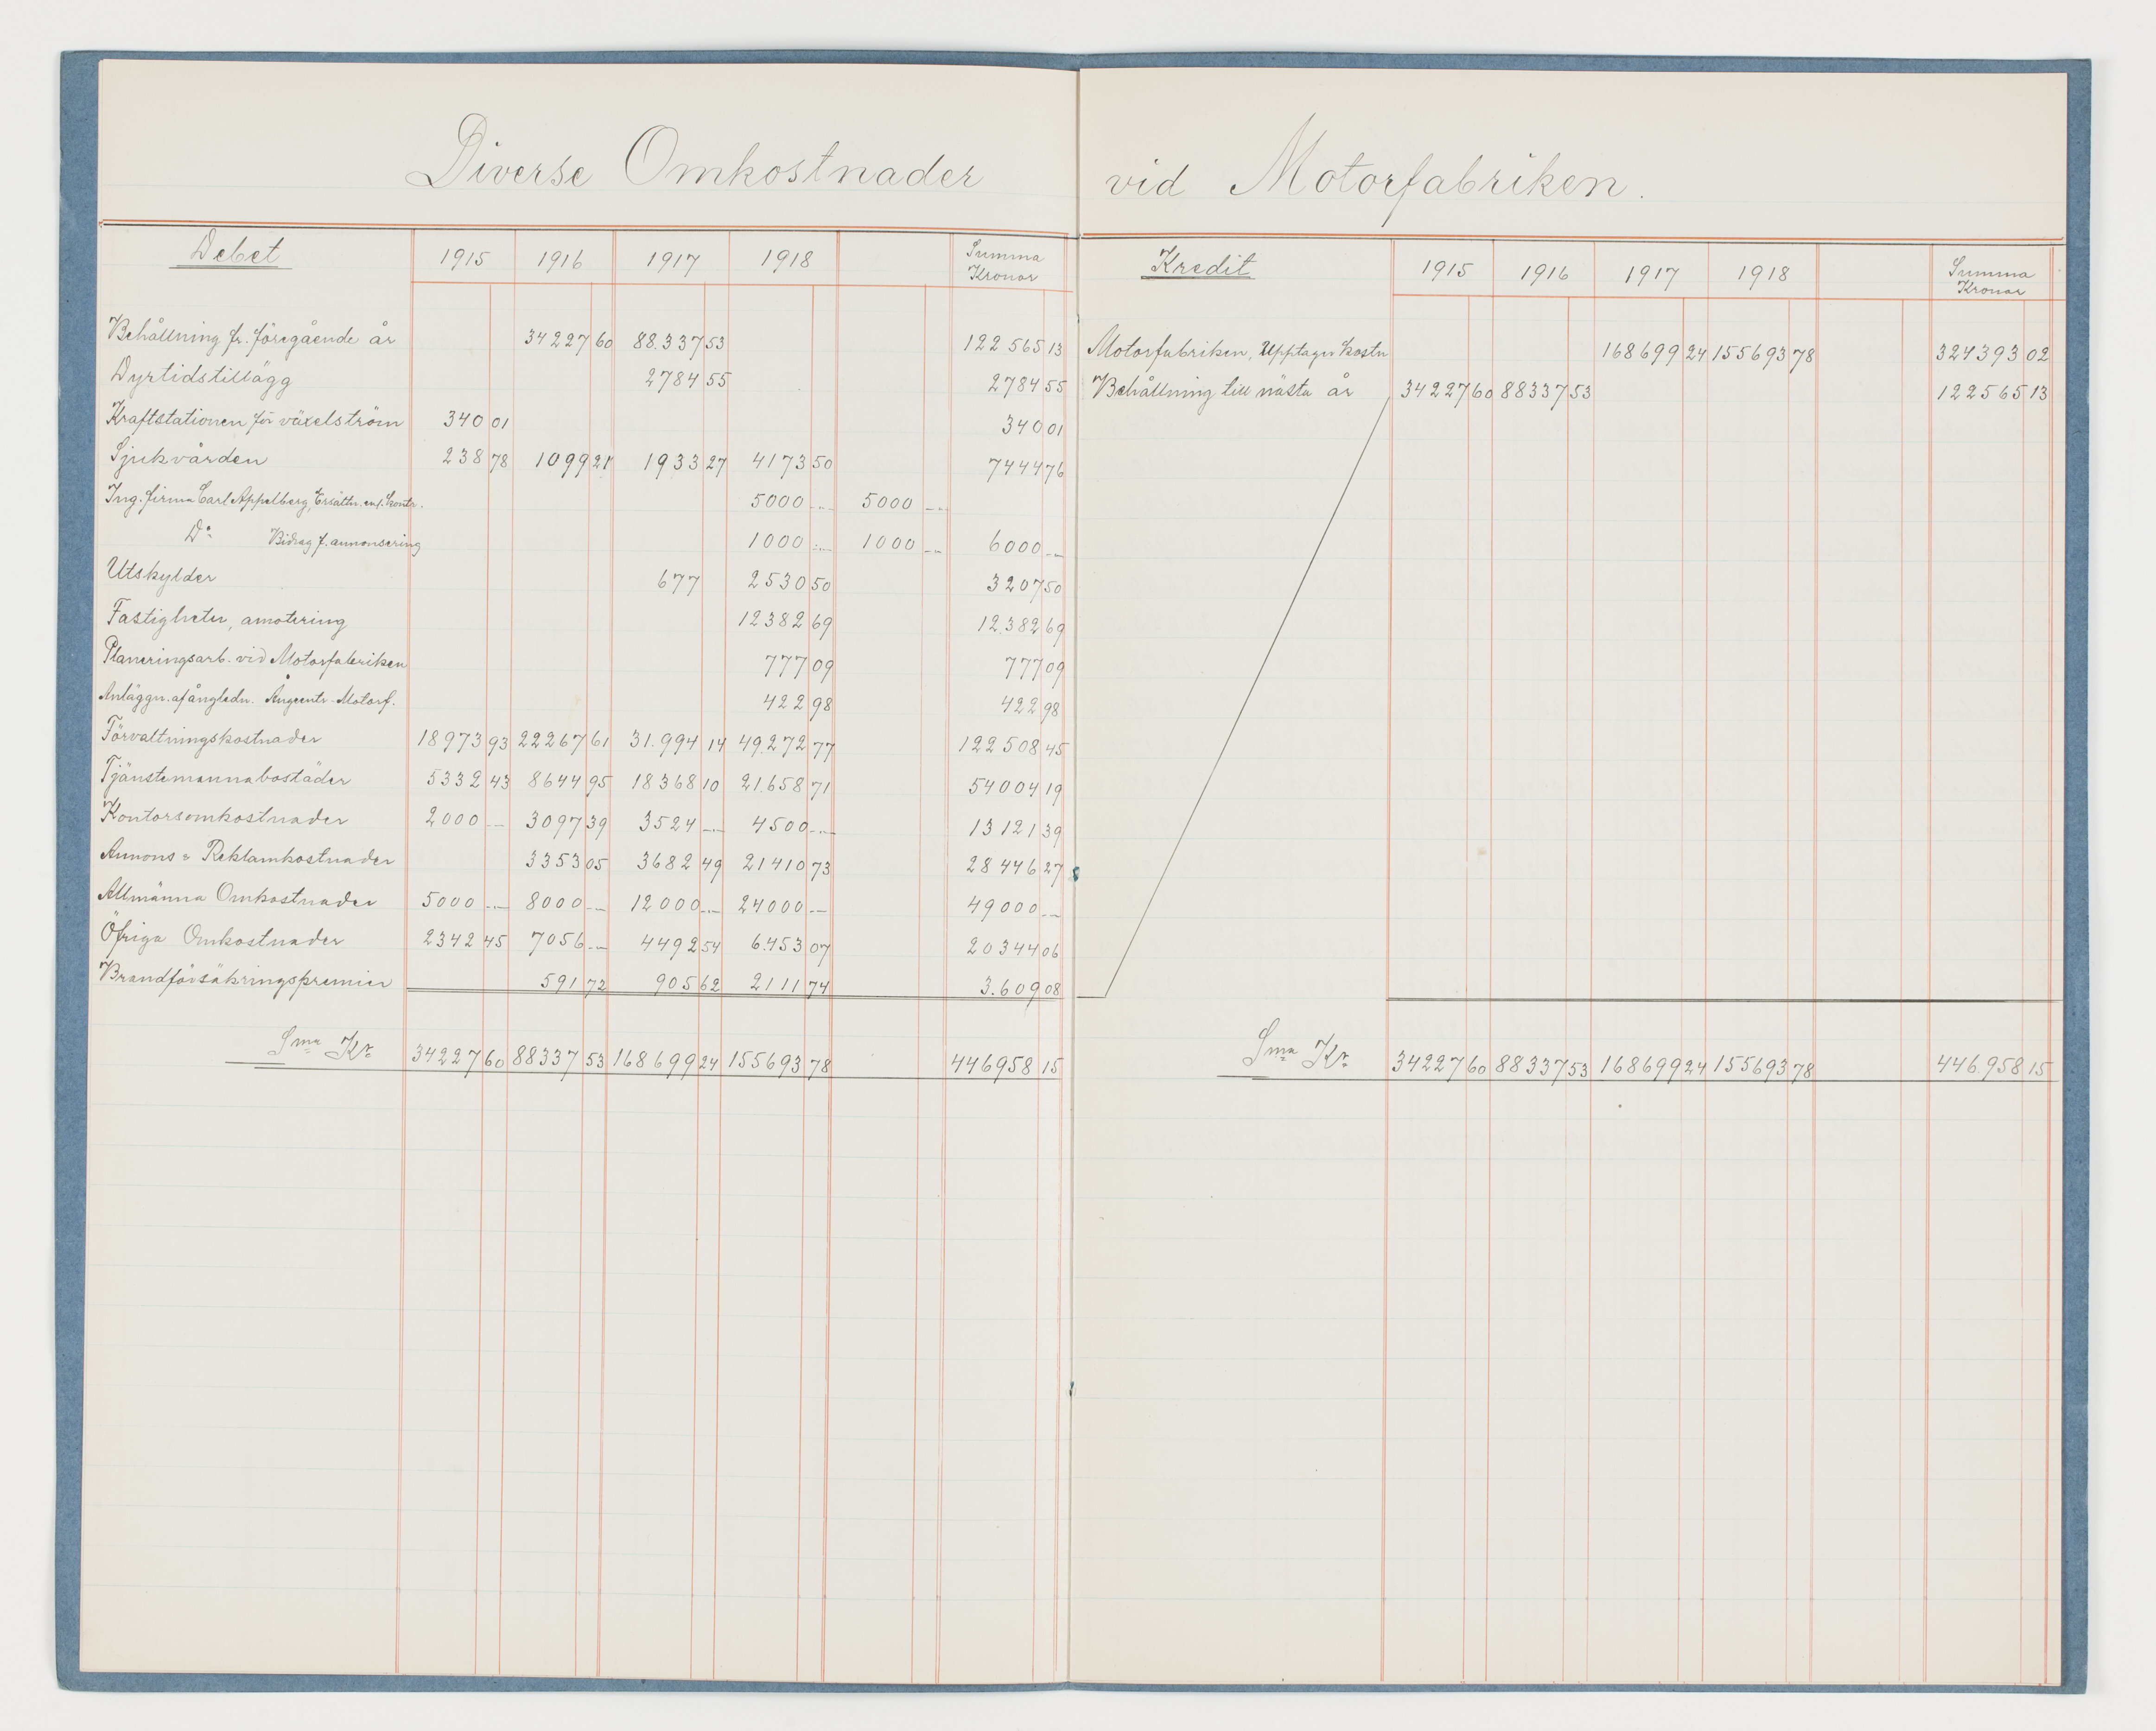 Diverse Omkostnader vid Motorfabriken.
Debet 1915 1916 1917 1918 Summa Kronor
Behållning fr. föregående år 34227 60 88.337 53 122565 13
Dyrtidstillägg 2784 55 2784 55
Kraftstationen för växelström 340 01 340 01
Sjukvården 238 78 1099 21 1933 27 4173 50 7444 76
Ing. firma Carl Appelberg, Ersättn. enl. kontr. 5000 -.- 5000 -.-
Do Bidrag f. annonsering 1000 -.- 1000 -.- 6000 -.-
Utskylder 677 2530 50 3207 50
Fastigheter, amotering 12382 69 12.382 69
Planeringsarb. vid Motorfabriken 777 09 777 09
Anläggn. af ångledn. Ångcentr.-Motorf. 422 98 422 98
Förvaltningskostnader 18973 93 22267 61 31.994 14 49.272 77 122508 45
Tjänstemannabostäder 5332 43 8644 95 18368 10 21.658 71 54004 19
Kontorsomkostnader 2000 -.- 3097 39 3524 -.- 4500 -.- 13121 39
Annons= Reklamkostnader 3353 05 3682 49 21410 73 28446 27
Allmänna Omkostnader 5000 -.- 8000 -.- 12000 -.- 24000 -.- 49000 -.-
Öfriga Omkostnader 2342 45 7056 -.- 4492 54 6.453 07 20344 06
Brandförsäkringspremier 591 72 905 62 2111 74 3.609 08
Sma Kr 34227 60 88337 53 168699 24 155693 78 446958 15
Kredit 1915 1916 1917 1918 Summa Kronor
Motorfabriken, Upptagen kostn 168699 24 155693 78 324393 02
Behållning till nästa år 34227 60 88337 53 122565 13
Sma Kr 34227 60 88337 53 168699 24 155693 78 446.958 15